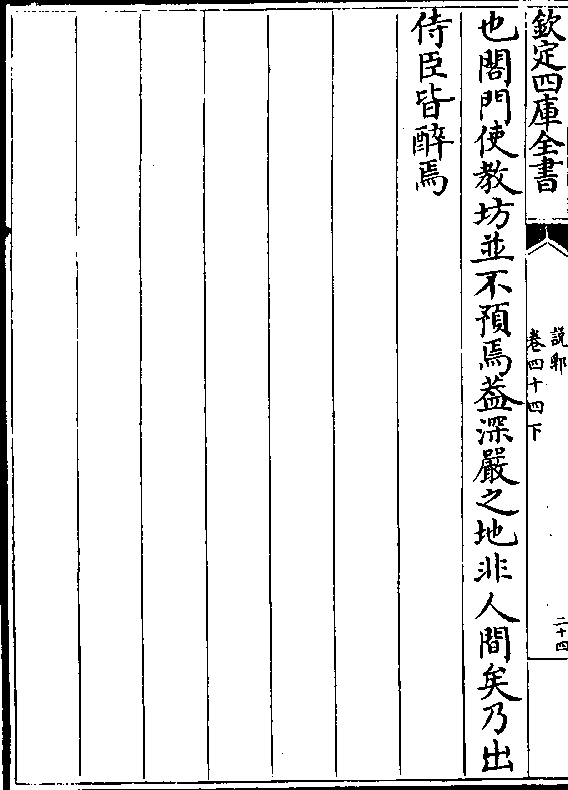 欽定四庫全書
說郛
卷四十四下
二十四
也閤門使教坊並不預焉葢深嚴之地非人間矣乃出
侍臣皆醉焉